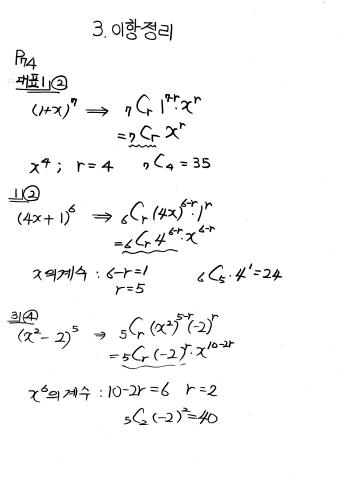 3. 이항정리
P74
대표1 ②
(1+x)⁷ ⇒ ₇Cᵣ 1⁷⁻ʳ·xʳ
= ₇Cᵣ xʳ
x⁴ ; r=4 ₇C₄ = 35
1 ②
(4x+1)⁶ ⇒ ₆Cᵣ (4x)⁶⁻ʳ·1ʳ
= ₆Cᵣ 4⁶⁻ʳ·x⁶⁻ʳ
x의계수 : 6-r=1 ₆C₅·4¹=24
r=5
3 ④
(x²-2)⁵ ⇒ ₅Cᵣ (x²)⁵⁻ʳ(-2)ʳ
= ₅Cᵣ (-2)ʳ·x¹⁰⁻²ʳ
x⁶의계수 : 10-2r=6 r=2
₅C₂(-2)²=40